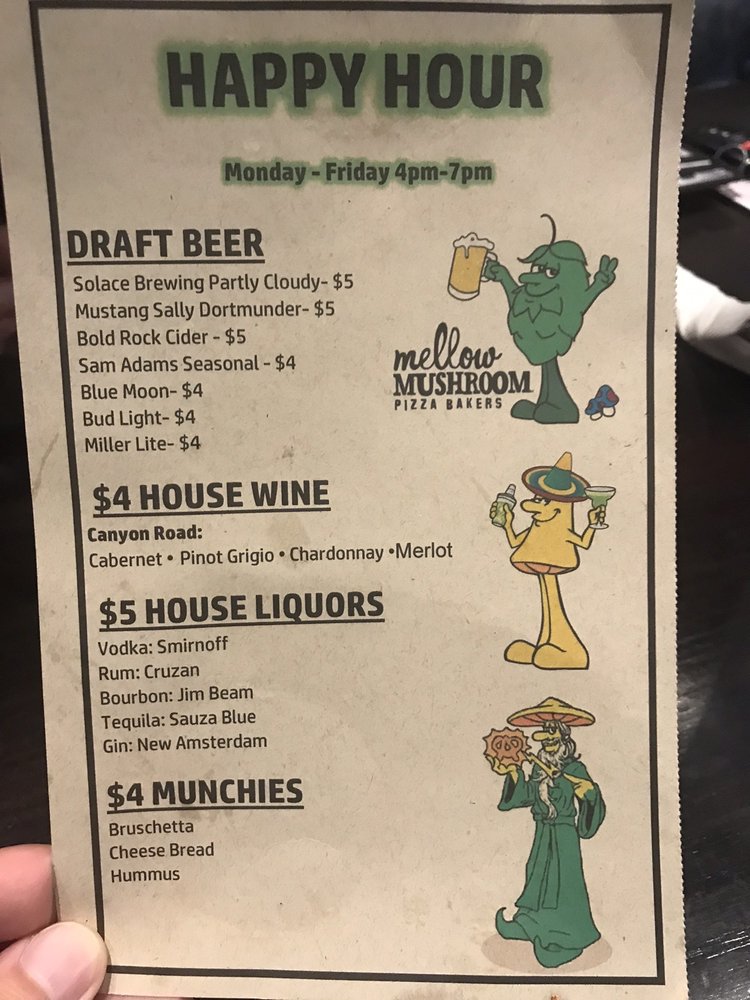 HAPPY HOUR
Monday - Friday 4pm-7pm
DRAFT BEER
Solace Brewing Partly Cloudy- $5
Mustang Sally Dortmunder- $5
Bold Rock Cider - $5
Sam Adams Seasonal - $4
Blue Moon- $4
Bud Light- $4
Miller Lite- $4
mellow
MUSHROOM
PIZZA BAKERS
$4 HOUSE WINE
Canyon Road:
Cabernet • Pinot Grigio • Chardonnay •Merlot
$5 HOUSE LIQUORS
Vodka: Smirnoff
Rum: Cruzan
Bourbon: Jim Beam
Tequila: Sauza Blue
Gin: New Amsterdam
$4 MUNCHIES
Bruschetta
Cheese Bread
Hummus